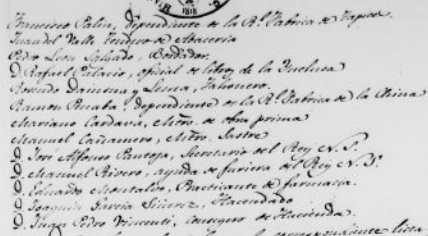 1818
Francisco Palia, dependiente de la Rl. Fabrica de Tapices.
Juan del Valle Tendero de Abaceria
Pedro Leon Salgado, Bordador.
D. Rafael Palacio, oficial de libros de la Inclusa
Rosendo y Tahonero.
Ramon dependiente de la Rl. Fabrica de la China
Mariano Cordavi, Mtro. de obra prima
Manuel Cañamero, Mtro. Sastre
D. Jose Alfonso Pantoja, Secretario del Rey N. S.
D. Manuel Rivero, ayuda de furiera del Rey N. S.
D. Eduardo Montalvo, Practicante de farmacia.
D. Joaquin Garcia Hacendado
D. Juan Pedro Vincenti, Consegero de Hacienda.
correspondiente lista